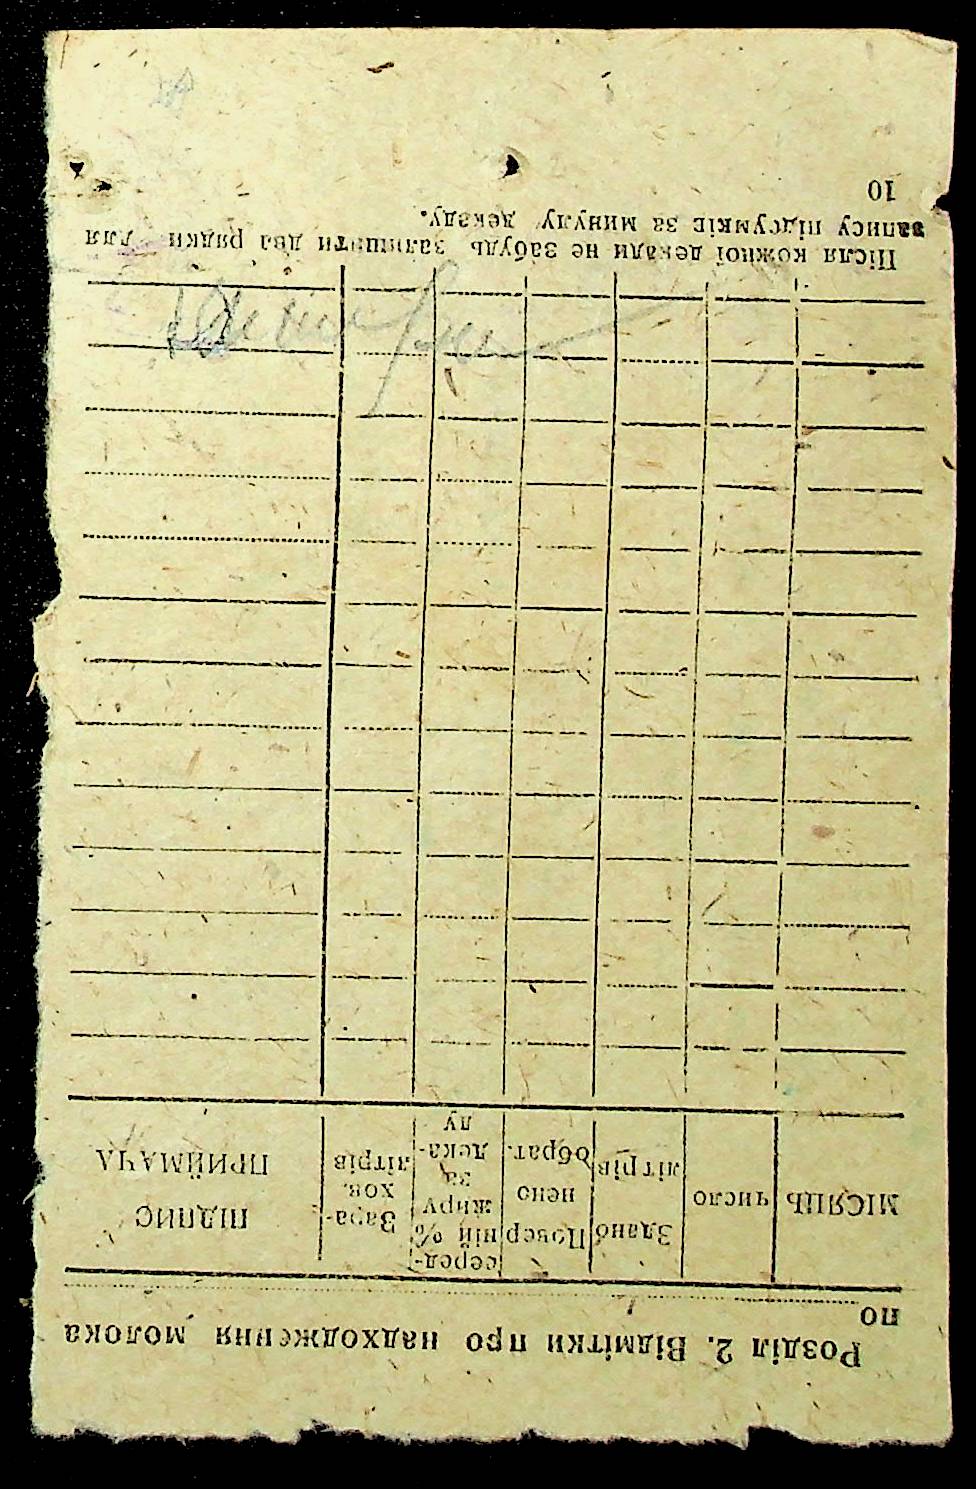 Розділ 2. Відмітки про надходження молока
по
МІСЯЦЬ
число
Здано
літрів
Повер-
нено
обрат.
серед-
ній %
жиру
за
дека-
ду
Зара-
хов.
літрів
ПІДПИС
ПРИЙМАЧА
Після кожної декади не забудь залишити два рядки для
запису підсумків за минулу декаду.
10